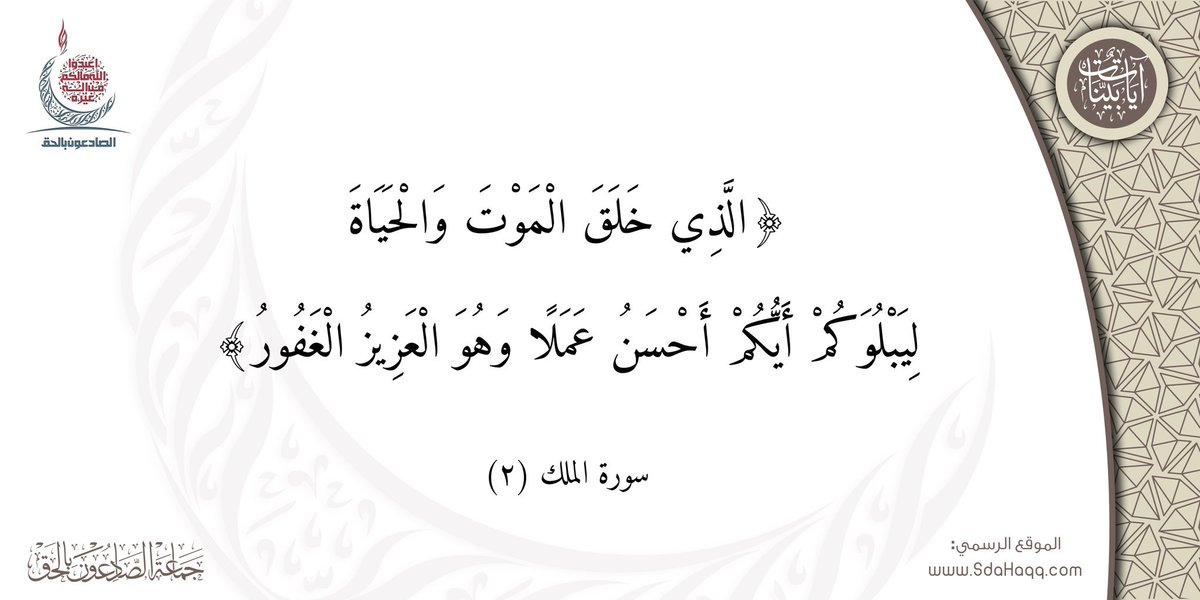 آيات بينات
اعبدوا
الله مالكم
من إله
غيره
الصادعون بالحق
﴿الَّذِي خَلَقَ الْمَوْتَ وَالْحَيَاةَ
لِيَبْلُوَكُمْ أَيُّكُمْ أَحْسَنُ عَمَلًا وَهُوَ الْعَزِيزُ الْغَفُورُ﴾
سورة الملك (٢)
الموقع الرسمي:
www.SdaHaqq.com
جماعة الصادعون بالحق